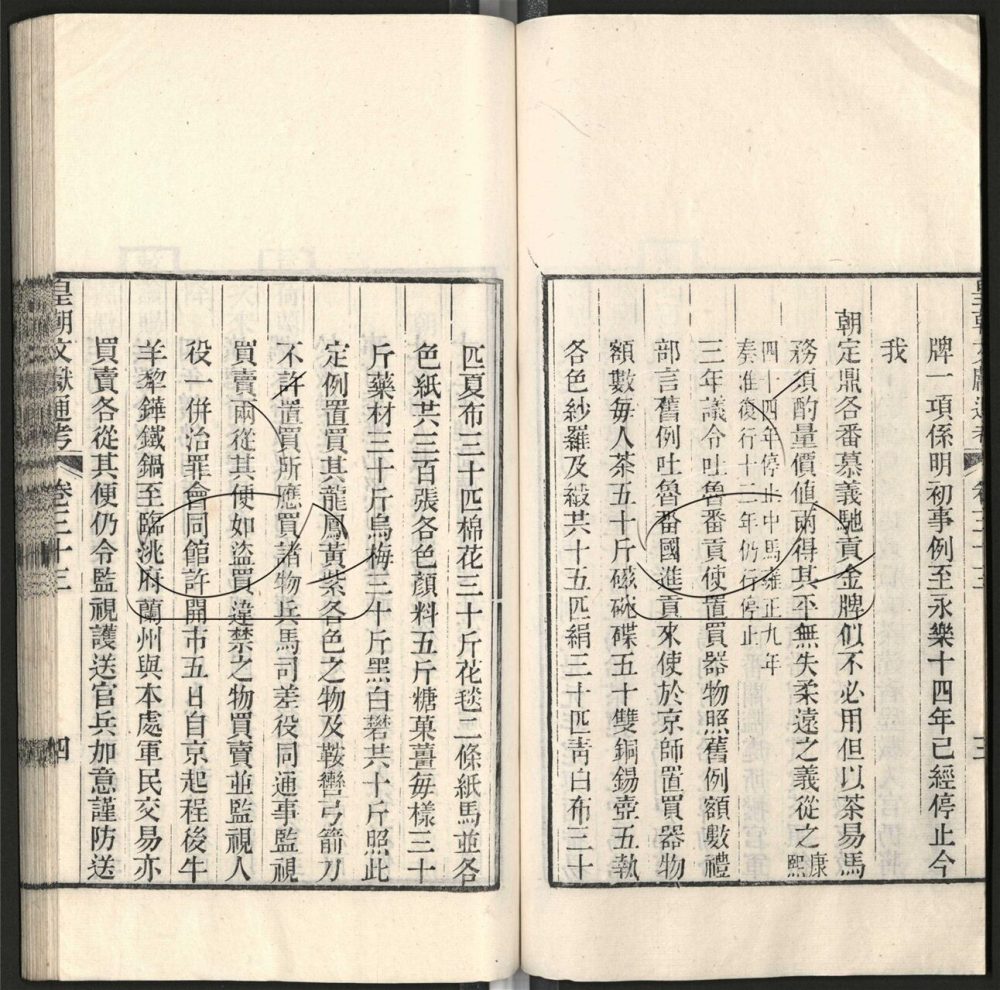 牌一項係明初事例至永樂十四年已經停止今
我
朝定鼎各番慕義馳貢金牌似不必用但以茶易馬
務須酌量價值兩得其平無失柔遠之義從之康
熙
四十四年停止中馬雍正九年
奏准復行十二年仍行停止
三年議令吐魯番貢使置買器物照舊例額數禮
部言舊例吐魯番國進貢來使於京師置買器物
額數每人茶五十斤磁碗碟五十雙銅錫壺五執
各色紗羅及緞共十五匹絹三十匹靑白布三十
匹夏布三十匹棉花三十斤花毯二條紙馬並各
色紙共三百張各色顏料五斤糖菓薑每樣三十
斤藥材三十斤烏梅三十斤黑白礬共十斤照此
定例置買其龍鳳黃紫各色之物及鞍轡弓箭刀
不許置買所應買諸物兵馬司差役同通事監視
買賣兩從其便如盜買違禁之物買賣並監視人
役一併治罪會同館許開市五日自京起程後牛
羊犂鏵鐵鍋至臨洮府蘭州與本處軍民交易亦
買賣各從其便仍令監視護送官兵加意謹防送
皇朝文獻通考 卷三十三 四